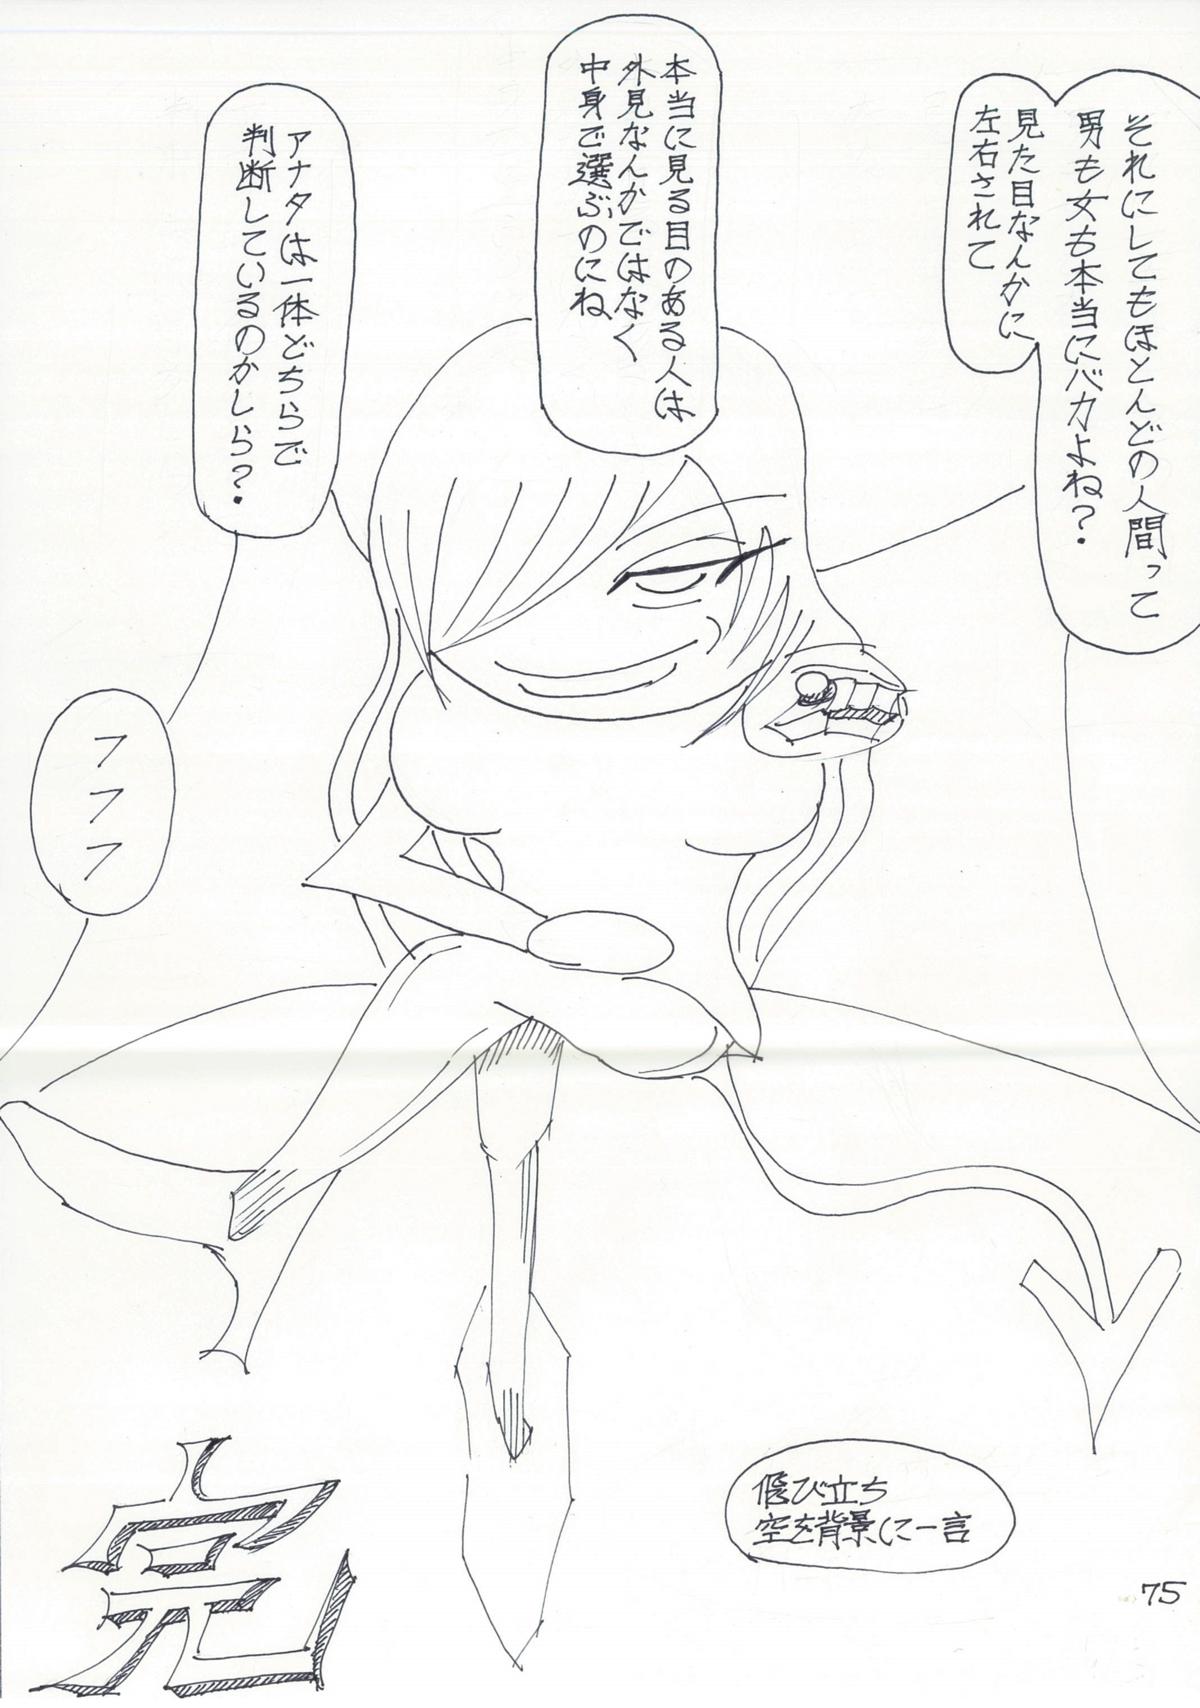 それにしてもほとんどの人間って
男も女も本当にバカよね?
見た目なんかに
左右されて
本当に見る目のある人は
外見なんかではなく
中身で選ぶのにね
アナタは一体どちらで
判断しているのかしら?
フフフ
飛び立ち
空を背景に一言
完
75